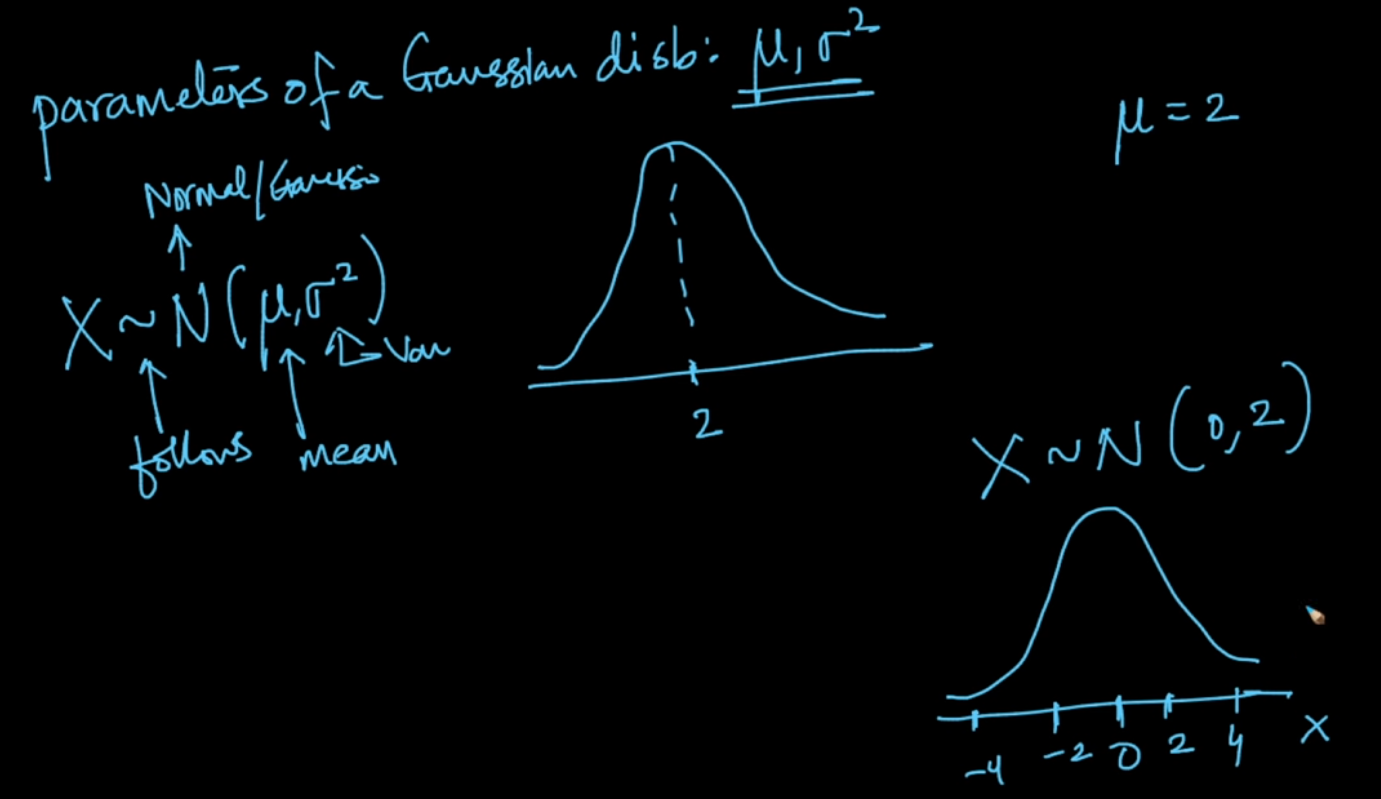 parameters of a Gaussian disb: μ, σ²
μ = 2
Normal/Gaussia
X ~ N(μ, σ²)
Var
follows mean
2
X ~ N(0, 2)
-4 -2 0 2 4 X